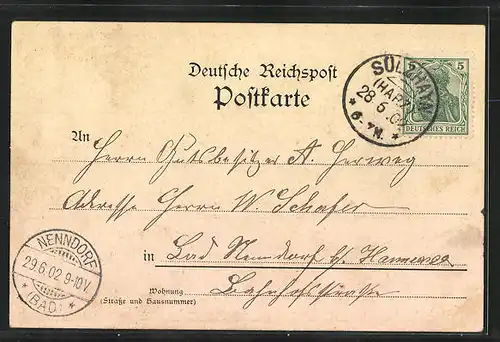 Deutsche Reichspost
Postkarte
SÜLZHAYN
(HARZ)
28 6.02
* 6-7N. *
5 5
DEUTSCHES REICH
An
Herrn Gutsbesitzer A. Herweg
Adresse Herrn W. Schäfer
in Bad Nenndorf b/ Hannover
Wohnung Bahnhofstraße
(Straße und Hausnummer)
NENNDORF
29.6.02.9-10V.
* (BAD) *